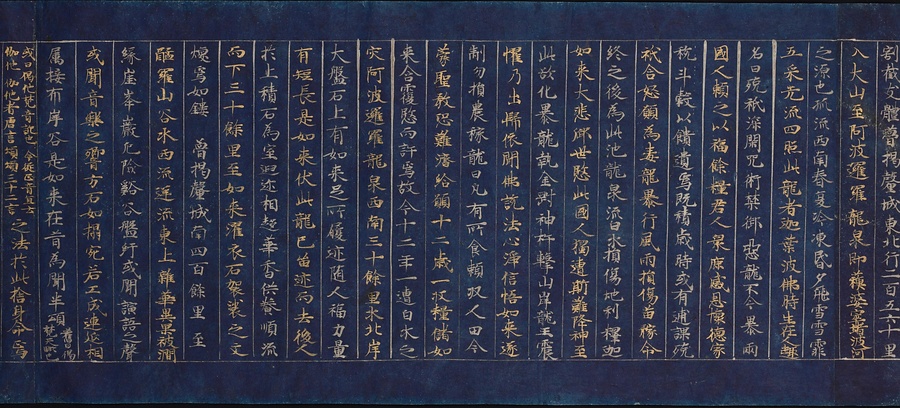 割截支體瞢揭釐城東北行二百五六十里
入大山至阿波邏羅龍泉即蘇婆窣波河
之源也派流西南春夏冷凍昏夕飛雪雪霏
五采光流四照此龍者迦葉波佛時生在人趣
名曰殑祇深閑咒術禁御惡龍不令暴雨
國人賴之以稸餘糧居人衆庶感恩懷德家
稅斗穀以饋遺焉既積歲時或有逋課殑
祇含怒願為毒龍暴行風雨損傷苗稼命
終之後為此池龍泉流白水損傷地利釋迦
如來大悲御世愍此國人獨遭斯難降神至
此欲化暴龍執金剛神杵擊山崖龍王震
懼乃出歸依聞佛說法心淨信悟如來遂
制勿損農稼龍曰凡有所食賴收人田今
蒙聖教恐難濟給願十二歲一收糧儲如
來含覆愍而許焉故今十二年一遭白水之
灾阿波邏羅龍泉西南三十餘里水北岸
大盤石上有如來足所履迹隨人福力量
有短長是如來伏此龍已留迹而去後人
於上積石為室遐迩相趨華香供養順流
而下三十餘里至如來濯衣石袈裟之文
煥焉如鏤 瞢揭釐城南四百餘里至
醯羅山谷水西派逆流東上雜華異果被澗
緣崖峯巖危險谿谷盤紆或聞諠語之聲
或聞音樂之響方石如榻宛若工成連延相
屬接布崖谷是如來在昔為聞半頌舊曰偈梵文略也
或曰偈他梵音訛也今從正音宜云伽他伽他者唐言頌頌三十二言之法於此捨身命焉